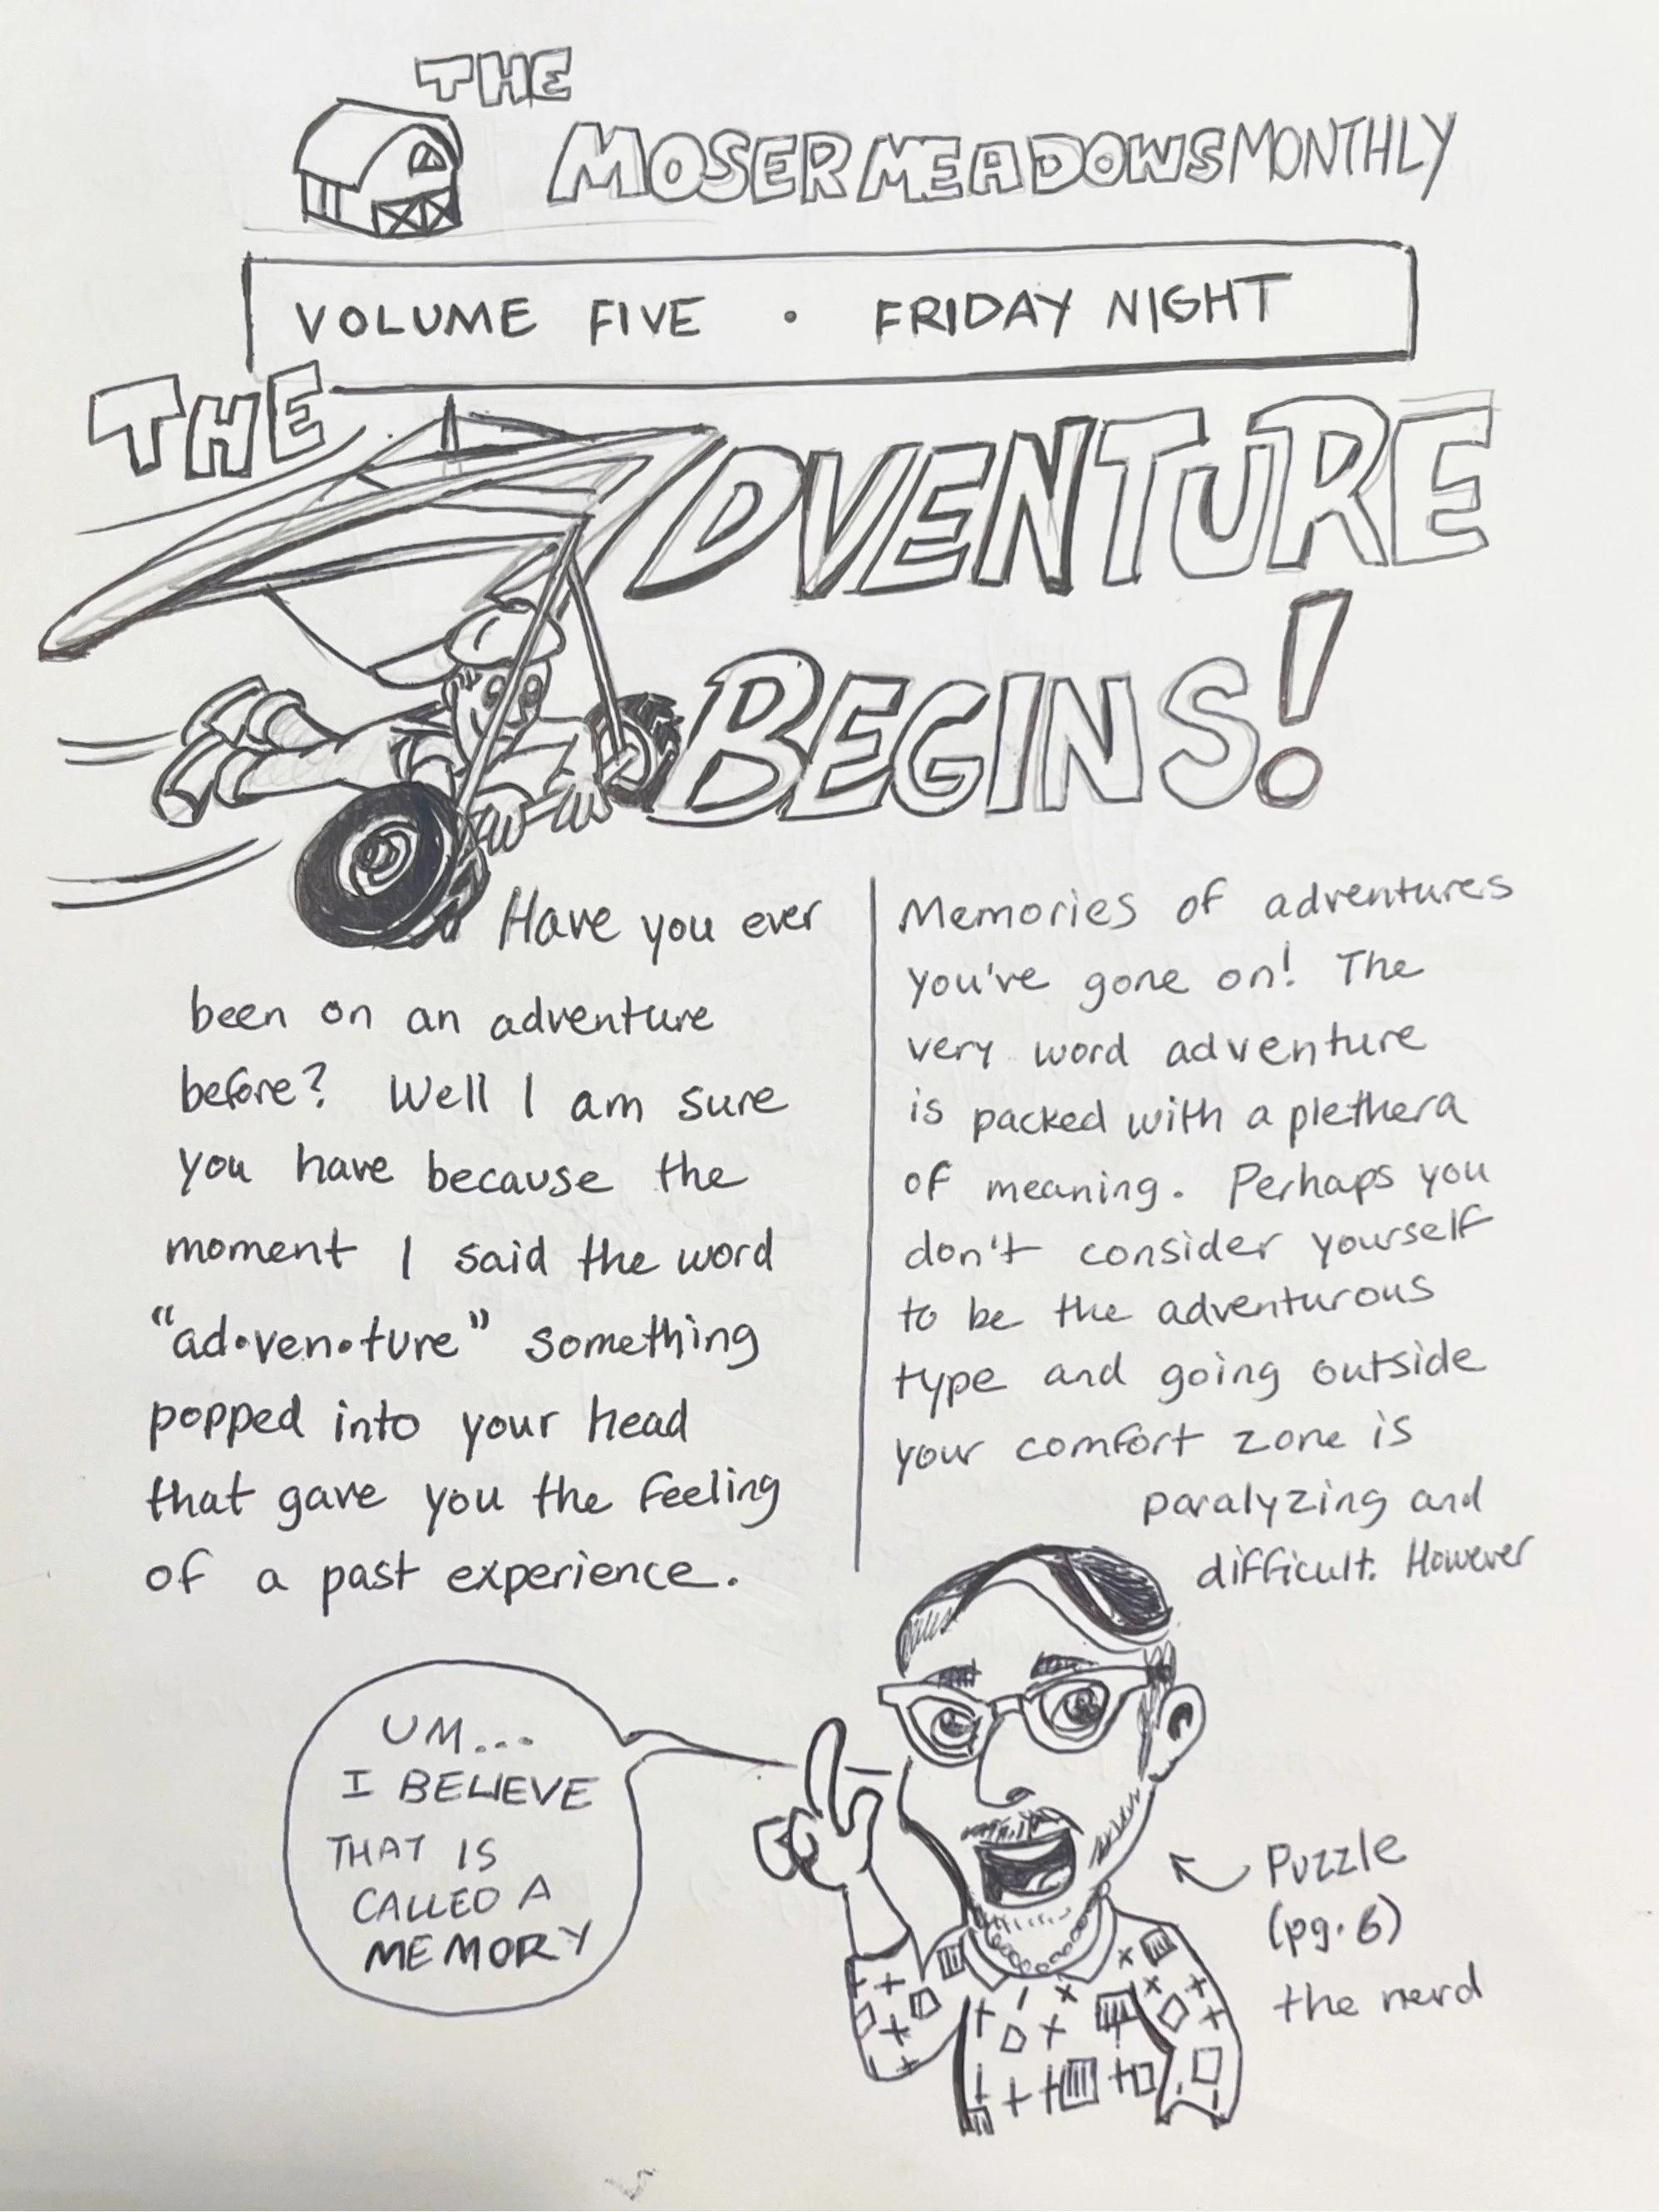 THE
MOSER MEADOWS MONTHLY
VOLUME FIVE • FRIDAY NIGHT
THE
ADVENTURE
BEGINS!
Have you ever
been on an adventure
before? Well I am sure
you have because the
moment I said the word
"ad•ven•ture" something
popped into your head
that gave you the feeling
of a past experience.
Memories of adventures
you've gone on! The
very word adventure
is packed with a plethera
of meaning. Perhaps you
don't consider yourself
to be the adventurous
type and going outside
your comfort zone is
paralyzing and
difficult. However
UM...
I BELIEVE
THAT IS
CALLED A
MEMORY
Puzzle
(pg. 6)
the nerd